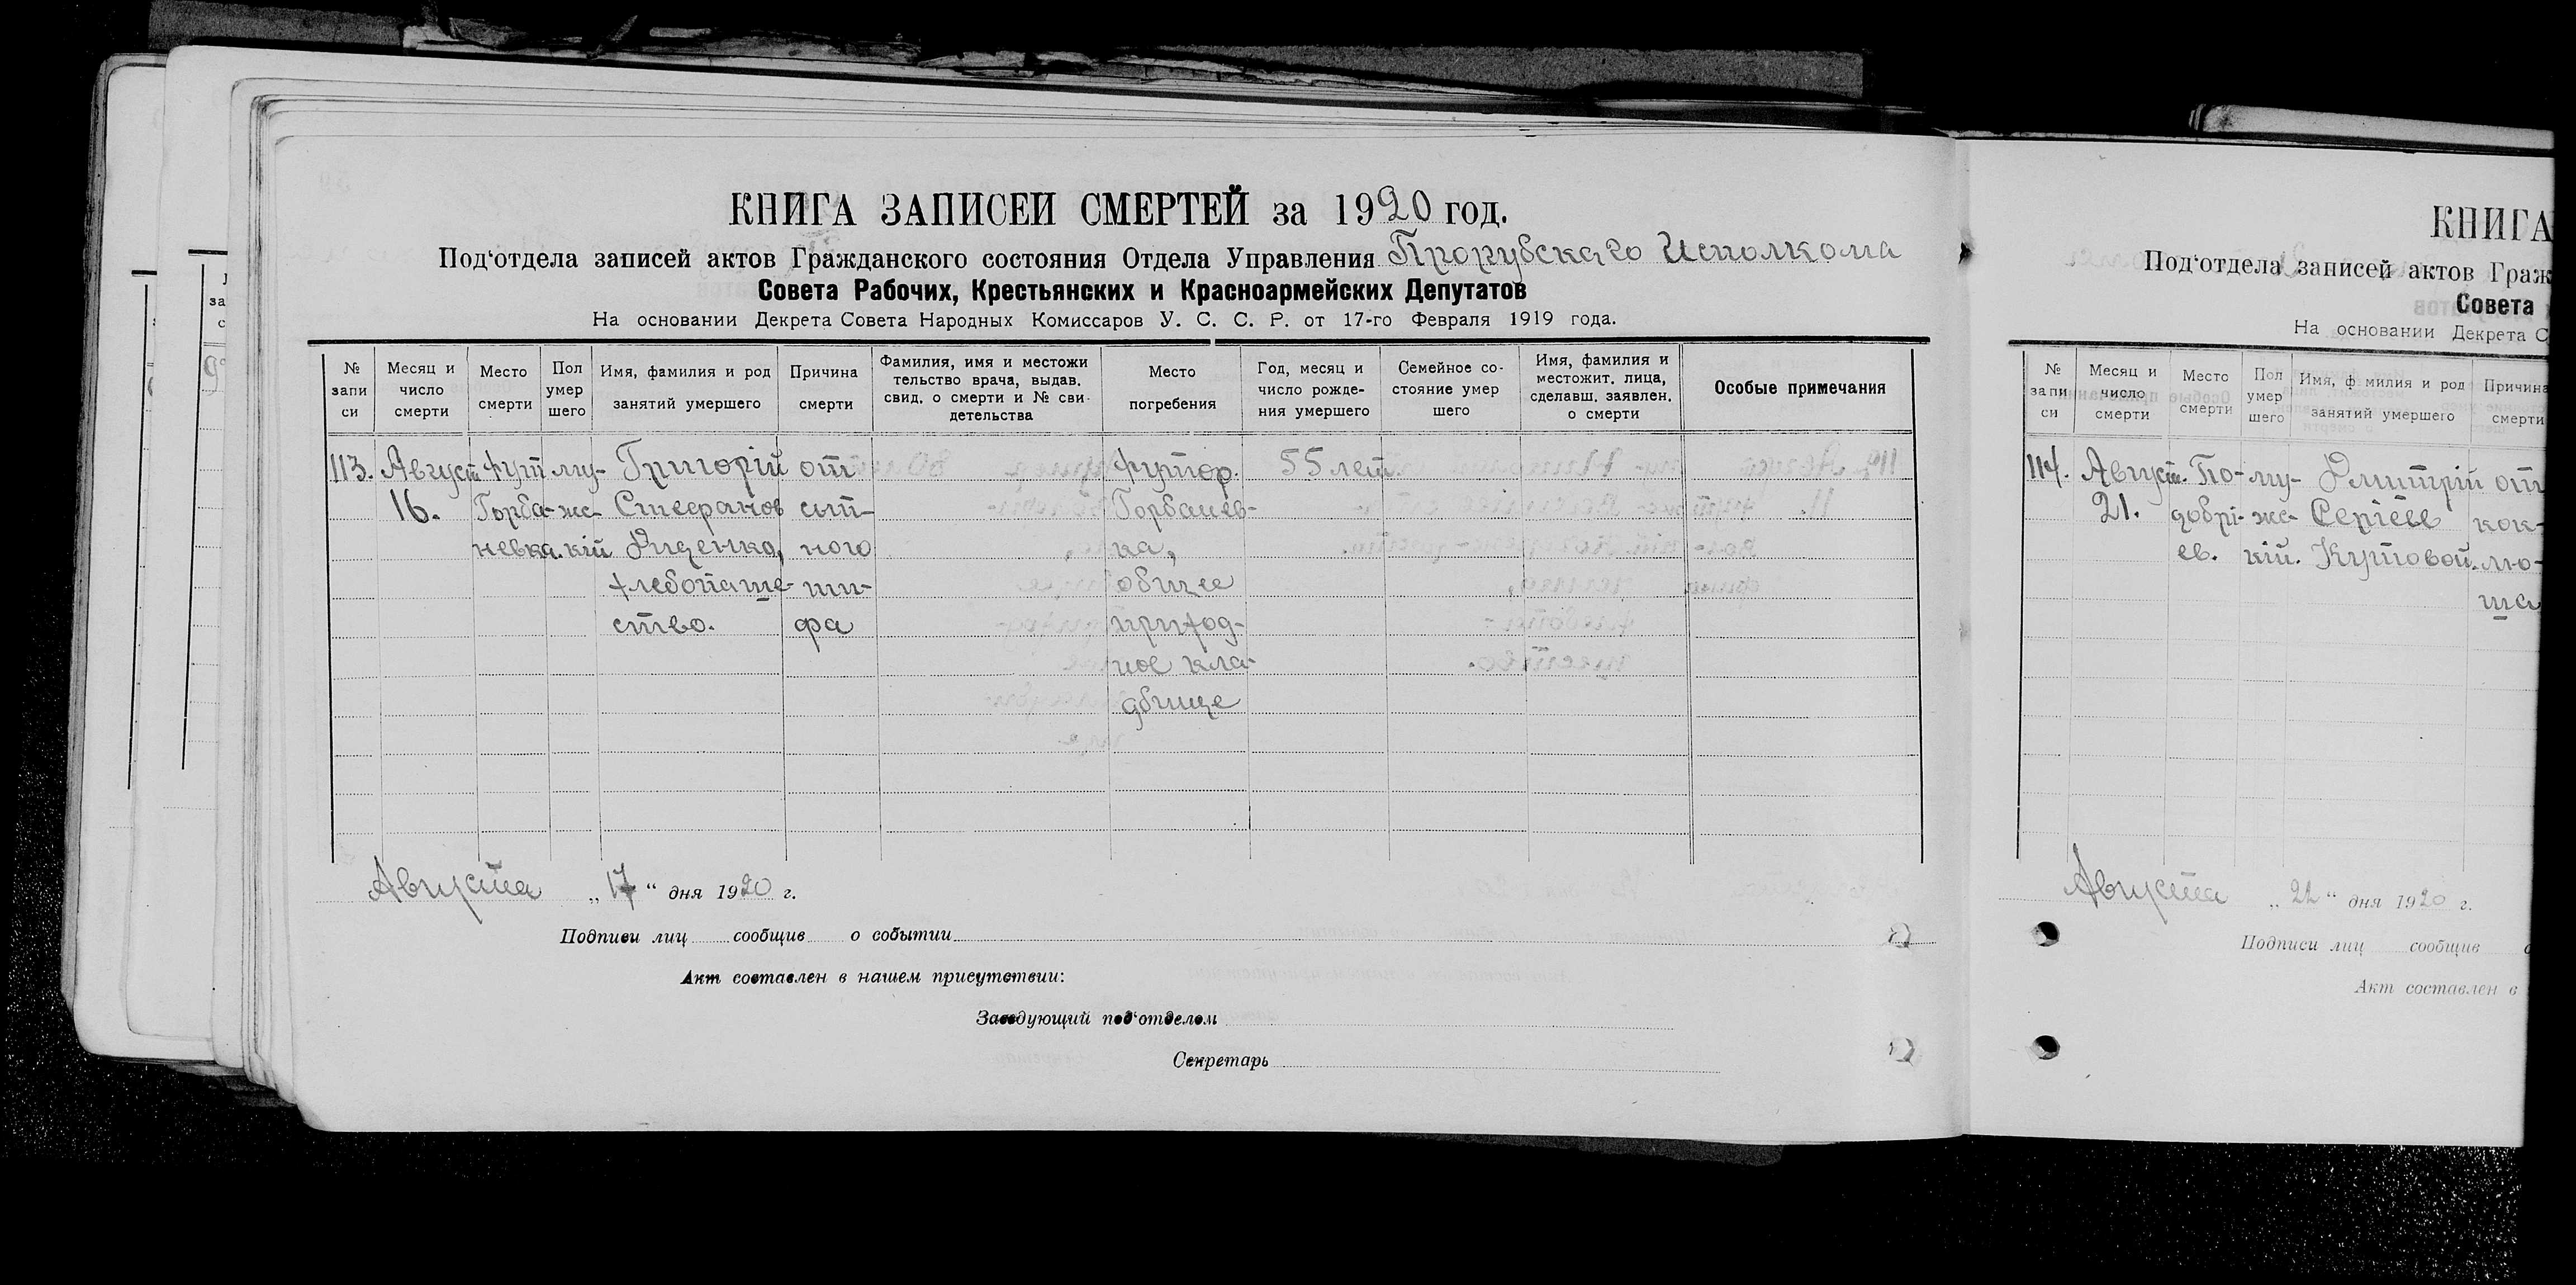 КНИГА ЗАПИСЕЙ СМЕРТЕЙ за 1920 год.
Под‘отдела записей актов Гражданского состояния Отдела Управления Прорубскаго Исполкома
Совета Рабочих, Крестьянских и Красноармейских Депутатов
На основании Декрета Совета Народных Комиссаров У. С. С. Р. от 17-го Февраля 1919 года.
№ запи си
Месяц и число смерти
Место смерти
Пол умер шего
Имя, фамилия и род занятий умершего
Причина смерти
Фамилия, имя и местожи тельство врача, выдав. свид. о смерти и № сви- детельства
Место погребения
Год, месяц и число рожде- ния умершего
Семейное со- стояние умер шего
Имя, фамилия и местожит. лица, сделавш. заявлен. о смерти
Особые примечания
113. Август хут му- Григорій от хутор. 55 лет
16. Горба- жс- Стефанов сып- Горбанев-
невка. кій Диденко, ного ка,
хлебопаше- ти- общее
ство. фа приход-
ное кла-
дбище
Августа „17“ дня 1920 г.
Подписи лиц сообщив о событии
Акт составлен в нашем присутствии:
Заведующий под‘отделом
Секретарь
КНИГА
Под‘отдела записей актов Граж
Совета
На основании Декрета С
№ запи си
Месяц и число смерти
Место смерти
Пол умер шего
Имя, ф милия и род занятий умершего
Причина смерти
114. Август. По- му- Дмитрій от
21. добрі- жс- Сергіев кок-
ев. кій. Кутовой. лю-
ша
Августа „22“ дня 1920 г.
Подписи лиц сообщив
Акт составлен в